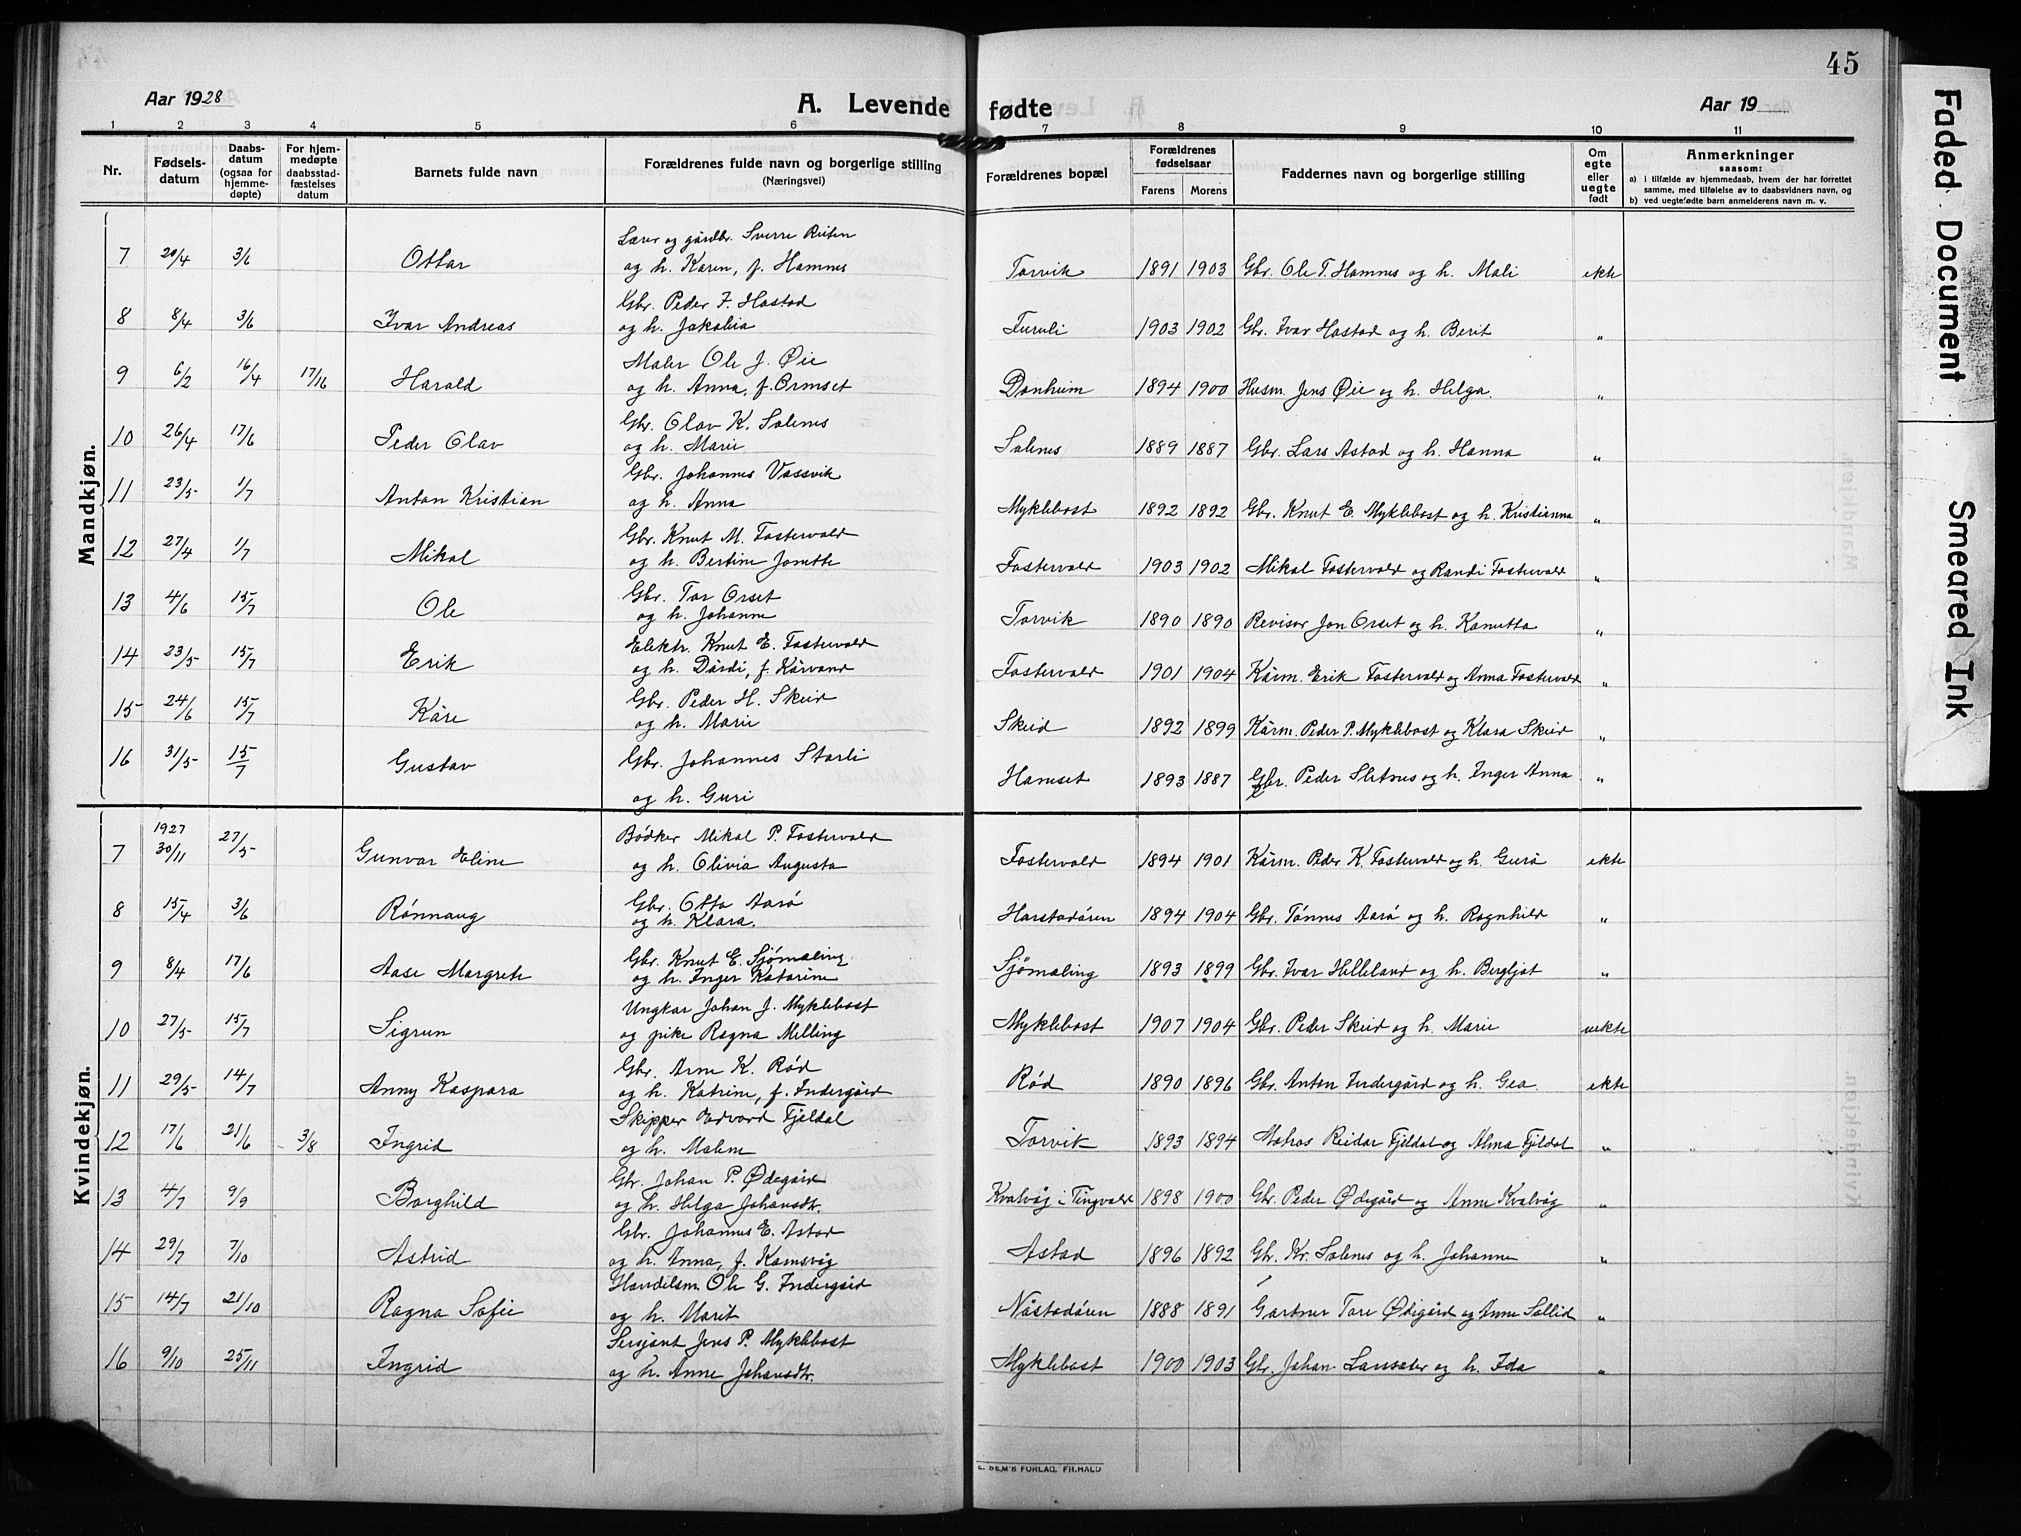 45
Aar 1928
A. Levende fødte
Aar 19
1 2 3 4 5 6 7 8 9 10 11
Nr.
Fødsels-
datum
Daabs-
datum
(ogsaa for
hjemme-
døpte)
For hjem-
medøpte
daabsstad-
fæstelses
datum
Barnets fulde navn
Forældrenes fulde navn og borgerlige stilling
(Næringsvei)
Forældrenes bopæl
Forældrenes
fødselsaar
Farens Morens
Faddernes navn og borgerlige stilling
Om
egte
eller
uegte
født
Anmerkninger
saasom:
a) i tilfælde av hjemmedaab, hvem der har forrettet
samme, med tilføielse av to daabsvidners navn, og
b) ved uegtefødte barn anmelderens navn m. v.
Mandkjøn.
Lærer og gårdbr. Sverre Reiten
7 20/4 3/6 Ottar og h. Karen, f. Hamnes Torvik 1891 1903 Gbr. Ole T. Hamnes og h. Mali ekte
Gbr. Peder I. Hastad
8 8/4 3/6 Ivar Andreas og h. Jakobia Furuli 1903 1902 Gbr. Ivar Hastad og h. Berit "
Maler Ole J. Øie
9 6/2 16/4 17/16 Harald og h. Anna, f. Ormset Donheim 1894 1900 Husm. Jens Øie og h. Helga. "
Gbr. Olav K. Solenes
10 26/4 17/6 Peder Olav og h. Marie Solenes 1889 1887 Gbr. Lars Astad og h. Hanna "
Gbr. Johannes Vassvik
11 23/5 1/7 Anton Kristian og h. Anna Myklebost 1892 1892 Gbr. Knut E. Myklebost og h. Kristianna "
Gbr. Knut M. Fostervold
12 27/4 1/7 Mikal og h. Bertine Jonette Fostervold 1903 1902 Mikal Fostervold og Randi Fostervold "
Gbr. Tor Orset
13 4/6 15/7 Ole og h. Johanne Torvik 1890 1890 Revisor Jon Orset og h. Kanutta "
Elektr. Knut E. Fostervold
14 23/5 15/7 Erik og h. Dårdi, f. Kårvand Fostervold 1901 1904 Kårm. Erik Fostervold og Anna Fostervold "
Gbr. Peder H. Skeid
15 24/6 15/7 Kåre og h. Marie Skeid 1892 1899 Kårm. Peder P. Myklebost og Klara Skeid "
16 31/5 15/7 Gustav Gbr. Johannes Starli Hamset 1893 1887 Gbr. Peder Sletnes og h. Inger Anna "
og h. Guri
Kvindekjøn.
1927 Bødker Mikal P. Fostervold
7 30/11 27/5 Gunvor Eline og h. Olivia Augusta Fostervold 1894 1901 Kårm. Peder K. Fostervold og h. Gurå ekte
Gbr. Otto Aarø
8 15/4 3/6 Rønnaug og h. Klara. Harstadøren 1894 1904 Gbr. Tønnes Aarø og h. Ragnhild "
Gbr. Knut E. Sjømæling
9 8/4 17/6 Aase Margrete og h. Inger Katarine Sjømæling 1893 1899 Gbr. Ivar Helleland og h. Bergljot "
Ungkar Johan J. Myklebost
10 27/5 15/7 Sigrun og pike Ragna Melling Myklebost 1907 1904 Gbr. Peder Skeid og h. Marie uekte
Gbr. Arne K. Rød
11 29/5 14/7 Anny Kaspara og h. Katrine, f. Indergård Rød 1890 1896 Gbr. Anton Indergård og h. Gea. ekte
Skipper Edvard Fjeldal
12 17/6 21/6 3/8 Ingrid og h. Malene Torvik 1893 1894 Matros Reidar Fjeldal og Alma Fjeldal "
Gbr. Johan P. Ødegård
13 4/7 9/9 Borghild og h. Helga Johansdtr. Kvalvåg i Tingvold 1898 1900 Gbr. Peder Ødegård og Anne Kvalvåg "
Gbr. Johannes E. Astad
14 29/7 7/10 Astrid og h. Anna, f. Kamsvåg Astad 1896 1892 Gbr. Kr. Solenes og h. Johanne "
Handelsm. Ole G. Indergård
15 14/7 21/10 Ragna Sofie og h. Marit Nåstadøren 1888 1891 Gartner Tore Ødegård og Anne Sollid "
Sersjant Jens P. Myklebost
16 9/10 25/11 Ingrid og h. Anne Johansdtr. Myklebost 1900 1903 Gbr. Johan Larssæter og h. Ida "
E. SEM'S FORLAG, FR.HALD
Faded Document
Smeared Ink